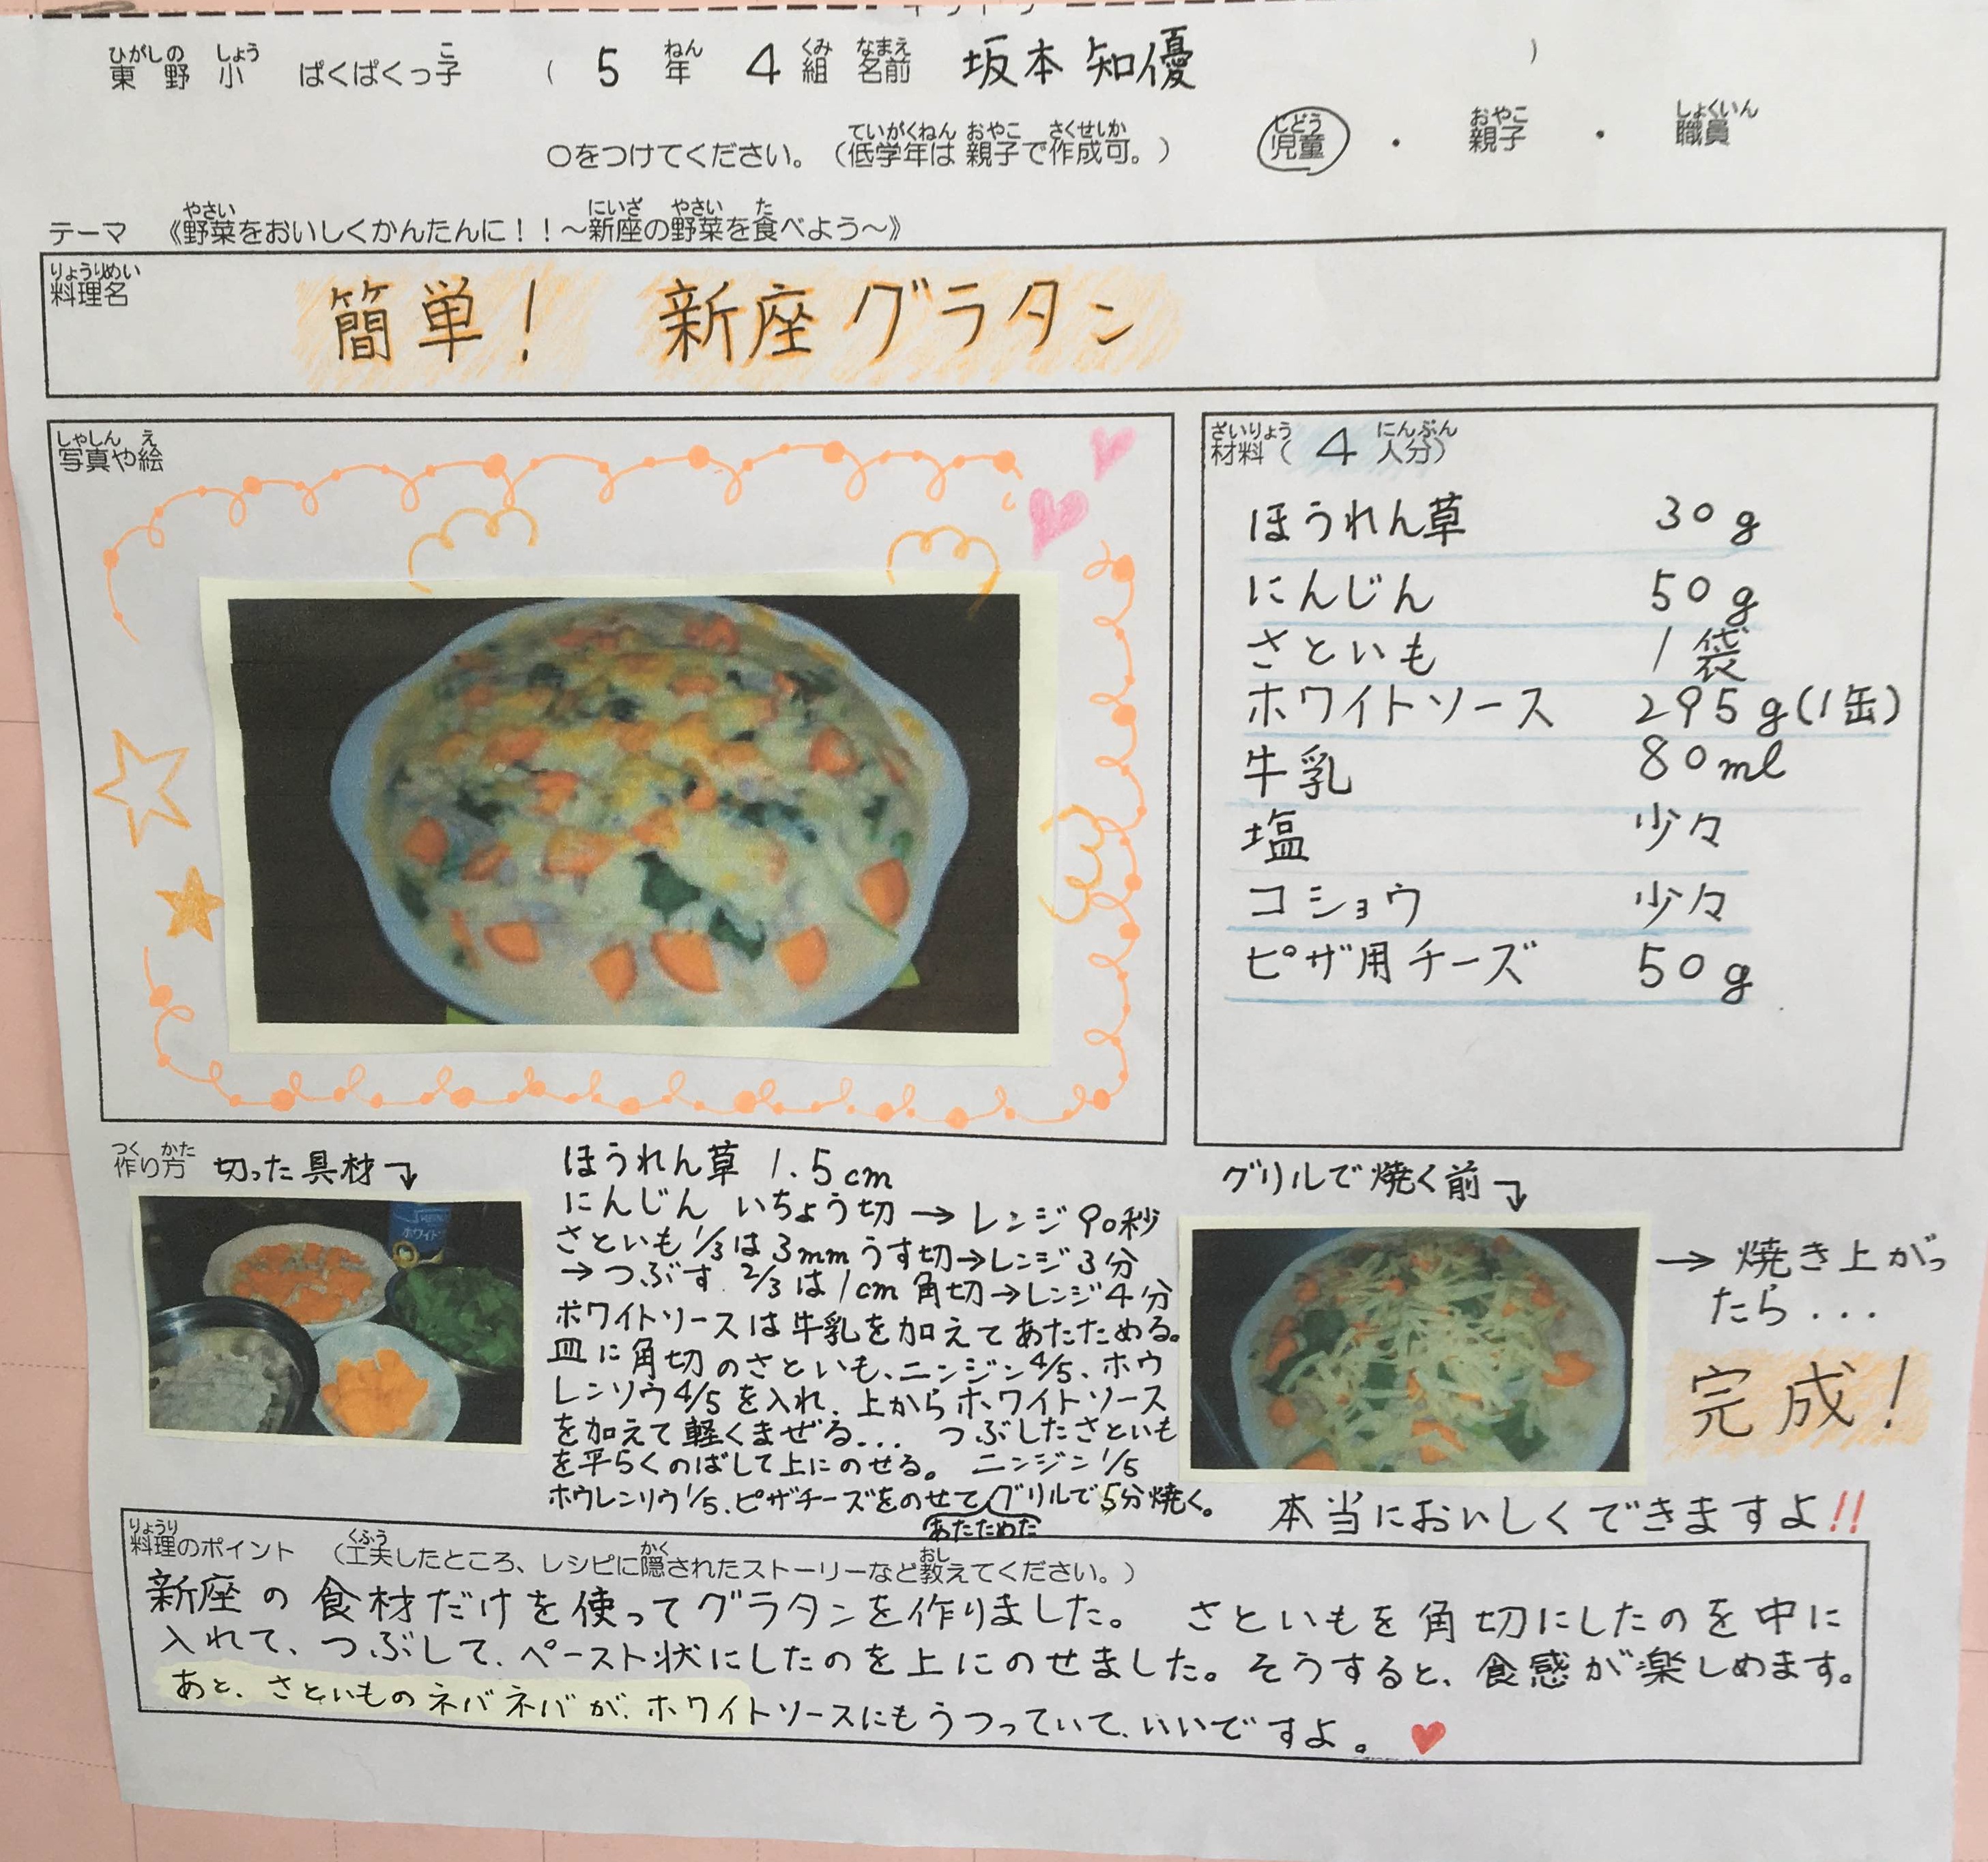 東野小 ぱくぱくっ子 ( 5年 4組 名前 坂本 知優 )
○をつけてください。(低学年は 親子で作成可。) 児童 ・ 親子 ・ 職員
テーマ 《野菜をおいしくかんたんに!!～新座の野菜を食べよう～》
料理名
簡単! 新座グラタン
写真や絵
材料( 4 人分)
ほうれん草 30g
にんじん 50g
さといも 1袋
ホワイトソース 295g(1缶)
牛乳 80ml
塩 少々
コショウ 少々
ピザ用チーズ 50g
作り方 切った具材
ほうれん草 1.5cm
にんじん いちょう切→レンジ90秒
さといも1/3は3mmうす切→レンジ3分
→つぶす 2/3は1cm角切→レンジ4分
ホワイトソースは牛乳を加えてあたためる。
皿に角切のさといも、ニンジン4/5、ホウ
レンソウ4/5を入れ、上からホワイトソース
を加えて軽くまぜる... つぶしたさといも
を平らくのばして上にのせる。 ニンジン1/5
ホウレンソウ1/5、ピザチーズをのせてグリルで5分焼く。
あたためた
グリルで焼く前
→焼き上がっ
たら...
完成!
本当においしくできますよ!!
料理のポイント (工夫したところ、レシピに隠されたストーリーなど教えてください。)
新座の食材だけを使ってグラタンを作りました。 さといもを角切にしたのを中に
入れて、つぶして、ペースト状にしたのを上にのせました。そうすると、食感が楽しめます。
あと、さといものネバネバが、ホワイトソースにもうつっていて、いいですよ。